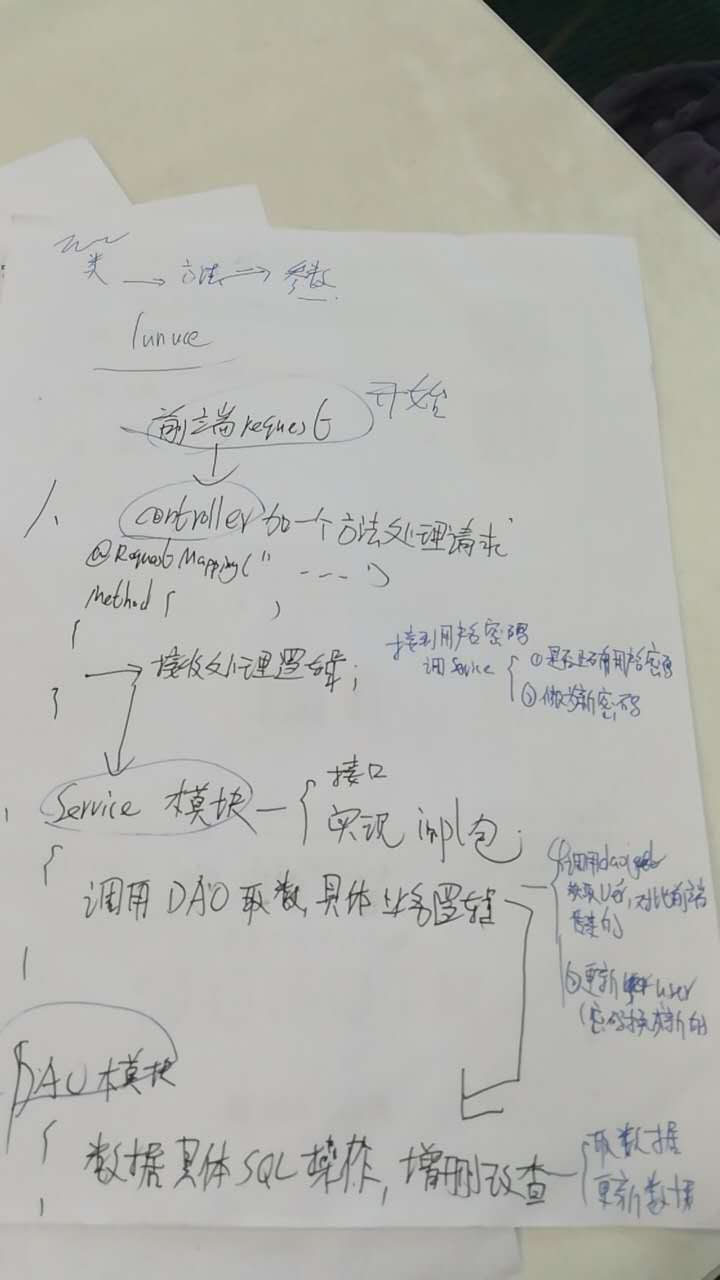 类 → 方法 → 参数
前端request 开始
1、controller 加一个方法处理请求
@RequestMapping("----")
Method {
接收处理逻辑;
接到用户名密码
调service { ①是否已有用户名密码
②修改新密码
Service 模块 — { 接口
实现 impl包;
{
调用DAO取数,具体业务逻辑
①调用dao
获取User,对比前端
②更新user
(密码换成新的
DAO模块
{
数据具体SQL操作,增删改查 { 取数据
更新数据